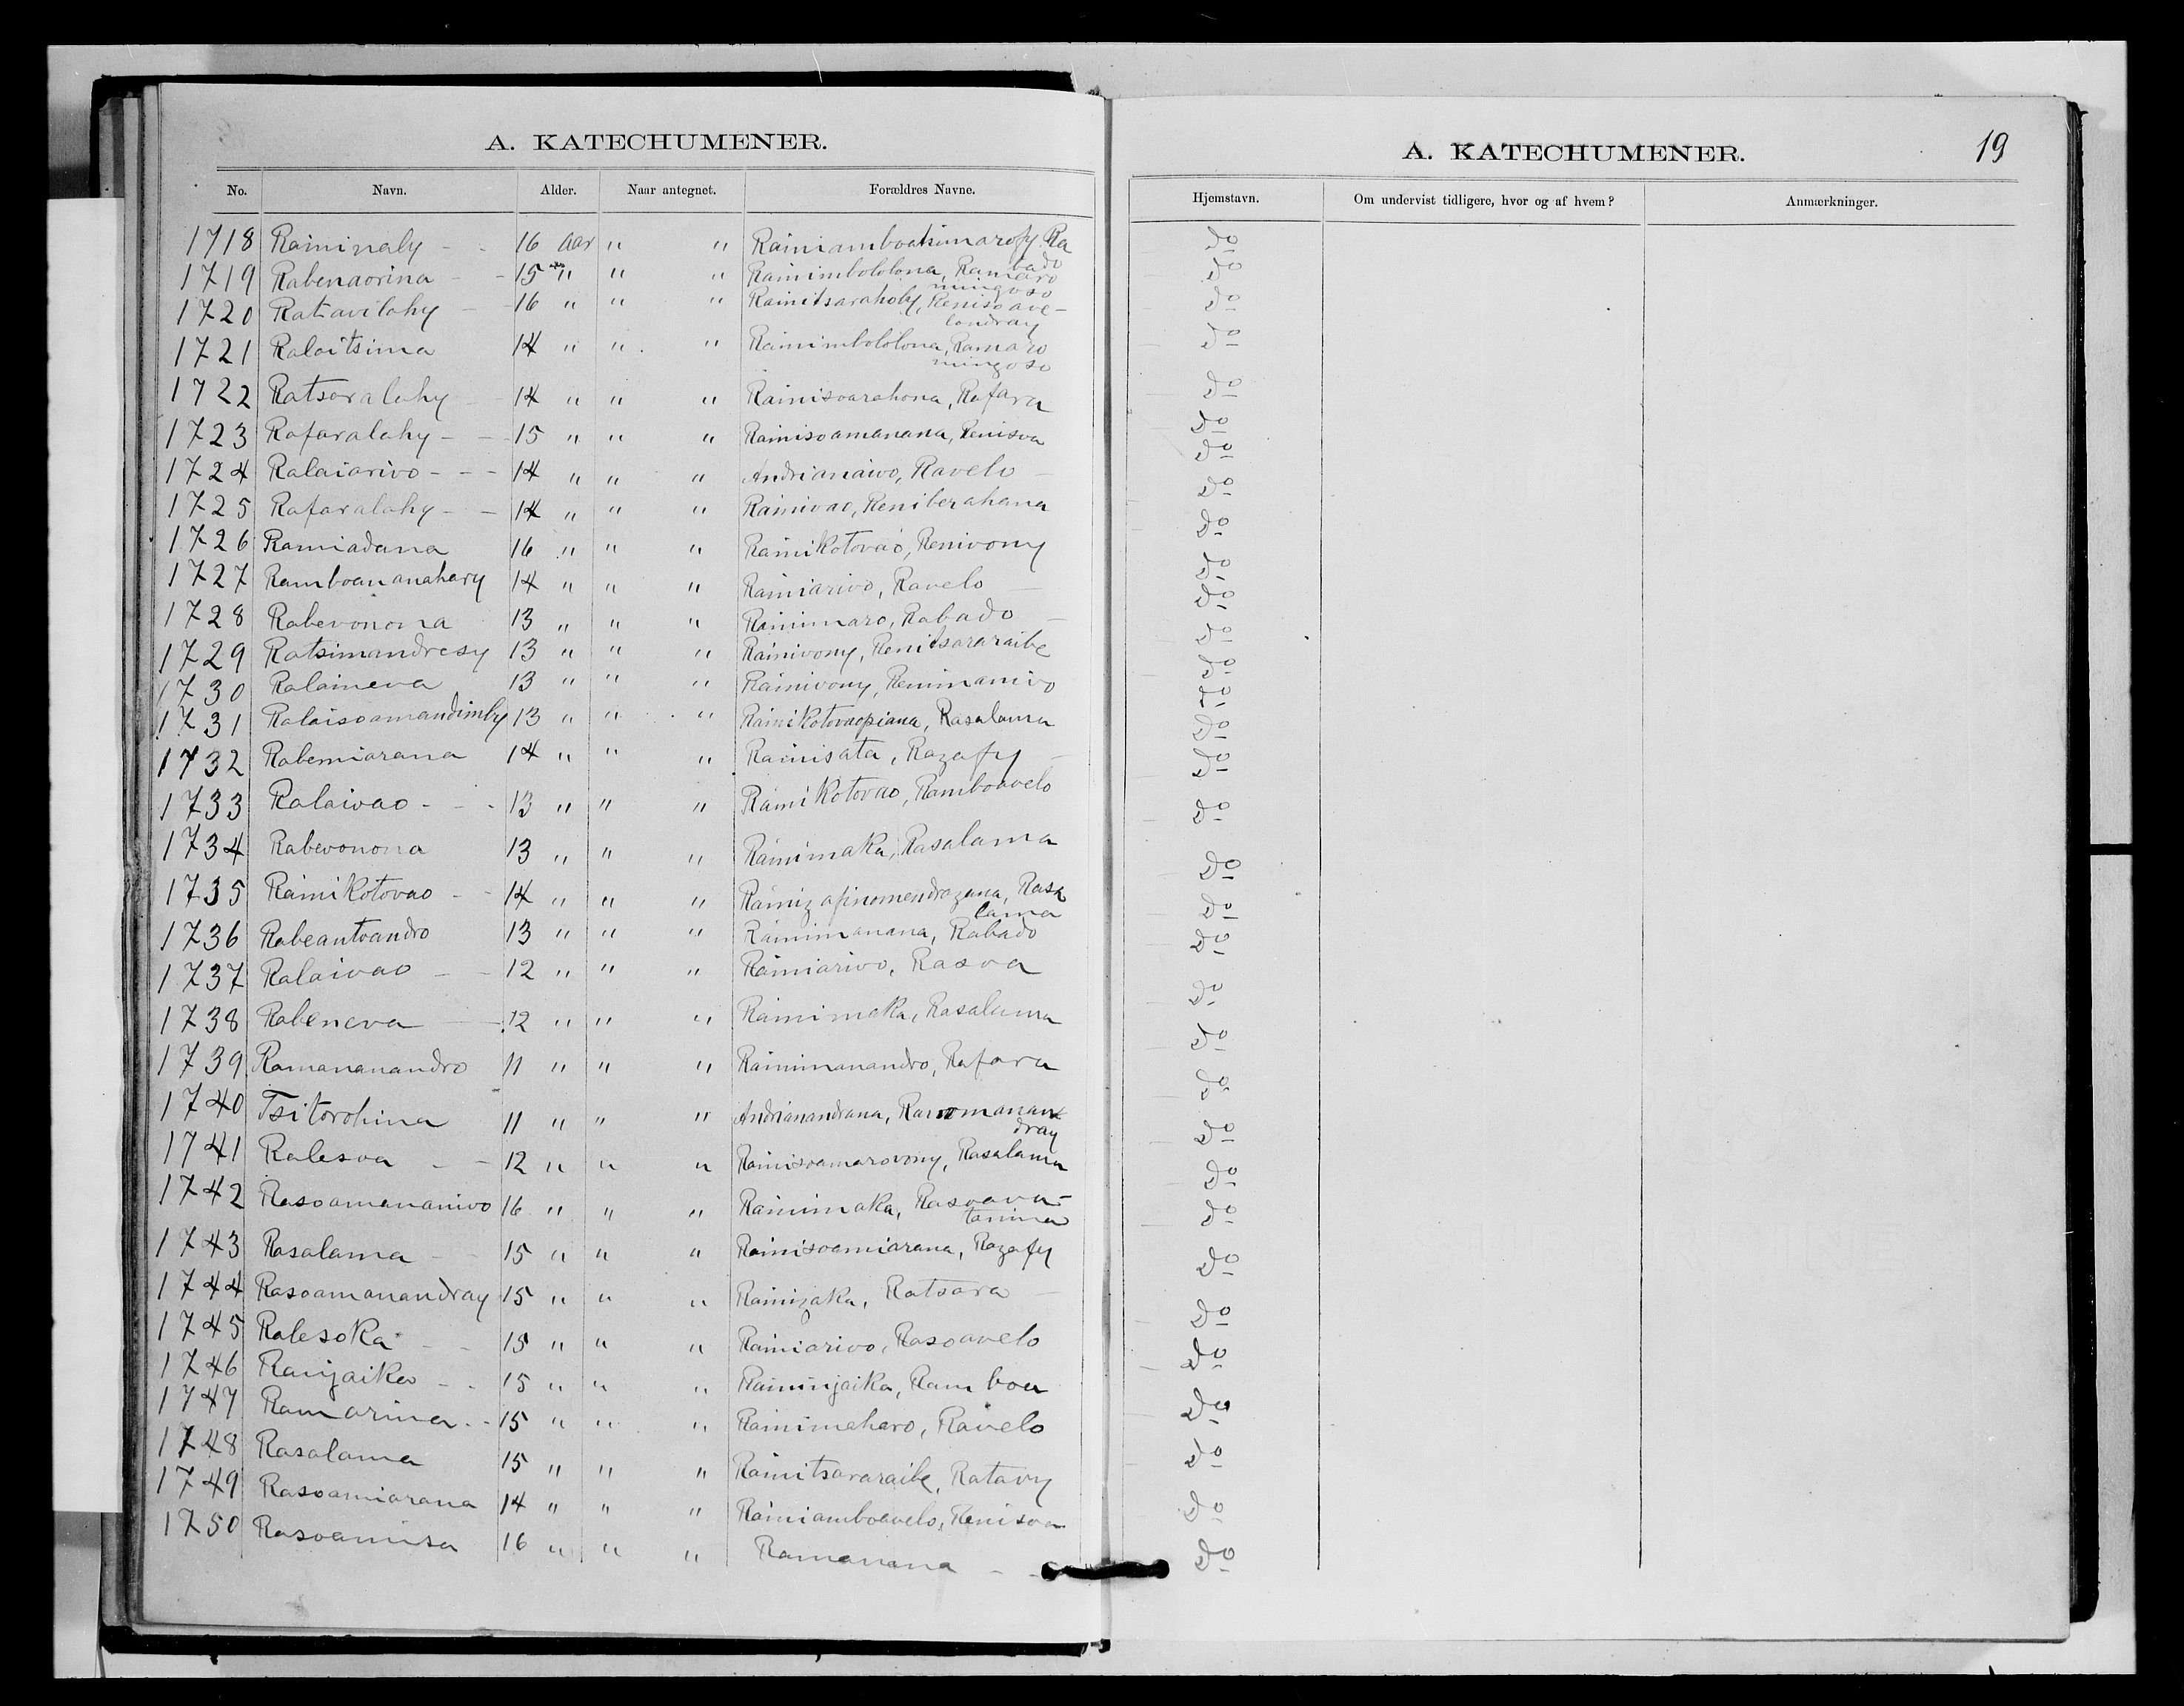 A. KATECHUMENER.
No. Navn. Alder. Naar antegnet. Forældres Navne.
1718 Raininaly - - 16 aar " " Rainiamboahimarofy. Ra
bado
1719 Rabenaorina - - 15 " " " Rainimbololona, Ramaro
mingoso
1720 Ratavilahy - - 16 " " " Rainitsarahoby, Renisoave-
londray
1721 Ralaitsima 14 " " " Rainimbololona, Ramaro
mingoso
1722 Ratsaralahy - 14 " " " Rainisoarahona, Rafara
1723 Rafaralahy - - 15 " " " Rainisoamanana, Renisoa
1724 Ralaiarivo - - - 14 " " " Andrianaivo, Ravelo
1725 Rafaralahy - - 14 " " " Rainivao, Reniberahana
1726 Ramiadana 16 " " " Rainikotovao, Renivony
1727 Ramboananahary 14 " " " Rainiarivo, Ravelo -
1728 Rabevonona 13 " " " Rainimaro, Rabado -
1729 Ratsimandresy 13 " " " Rainivony, Renitsararaibe
1730 Ralaineva 13 " " " Rainivony, Renimanivo
1731 Ralaisoamandimby 13 " " " Rainikotovaopiana, Rasalama
1732 Rabemiarana 14 " " " Rainisata, Razafy -
1733 Ralaivao - - - 13 " " " Rainikotovao, Ramboavelo
1734 Rabevonona 13 " " " Rainimaka, Rasalama
1735 Rainikotovao - - 14 " " " Rainizafinomendrazana, Rasa
lama
1736 Rabeantoandro 13 " " " Rainimanana, Rabado
1737 Ralaivao - - 12 " " " Rainiarivo, Rasoa
1738 Rabeneva - 12 " " " Rainimaka, Rasalama
1739 Ramananandro 11 " " " Rainimanandro, Rafara
1740 Tsitorohina 11 " " " Andrianandrana, Ramomanan
dray
1741 Ralesoa - - 12 " " " Rainisoamarovony, Rasalama
1742 Rasoamananivo 16 " " " Rainimaka, Rasoava-
tanina
1743 Rasalama - - 15 " " " Rainisoamiarana, Razafy
1744 Rasoamanandray 15 " " " Rainizaka, Ratsara -
1745 Ralesoka - - 15 " " " Rainiarivo, Rasoavelo
1746 Ranjaika - - 15 " " " Raininjaika, Ramboa
1747 Ramarina - - 15 " " " Rainimaharo, Ravelo
1748 Rasalama 15 " " " Rainitsararaibe, Ratavy
1749 Rasoamiarana 14 " " " Rainiamboavelo, Renisoa
1750 Rasoamisa 16 " " " Ramanana - -
A. KATECHUMENER. 19
Hjemstavn. Om undervist tidligere, hvor og af hvem? Anmærkninger.
Do
Do
Do
Do
Do
Do
Do
Do
Do
Do
Do
Do
Do
Do
Do
Do
Do
Do
Do
Do
Do
Do
Do
Do
Do
Do
Do
Do
Do
Do
Do
Do
Do